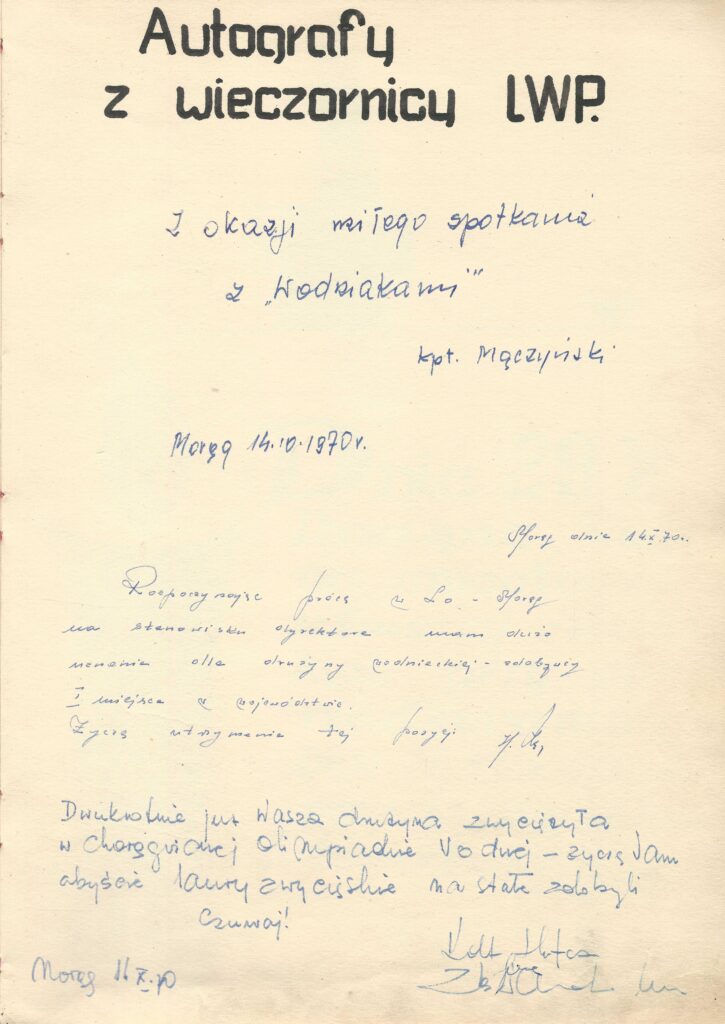 Autografy
z wieczornicy LWP.
Z okazji miłego spotkania
z „Wodniakami"
kpt. Mączyński
Morąg 14.10.1970r.
Morąg dnia 14.X.70r.
Rozpoczynając pracę w Lo. - Morąg
na stanowisku dyrektora mam dużo
uznania dla drużyny wodniackiej - zdobywcy
I miejsca w województwie.
Życzę utrzymania tej pozycji
Dwukrotnie już Wasza drużyna zwyciężyła
w chorągwianej olimpiadzie Wodnej - życzę Wam
abyście laury zwycięskie na stałe zdobyli
Czuwaj!
Morąg X.70